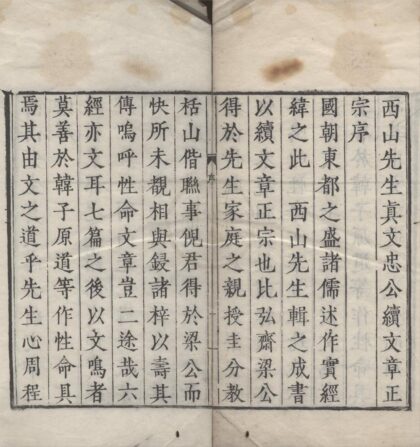 西山先生真文忠公續文章正
宗序
國朝東都之盛諸儒述作實經
緯之此　西山先生輯之成書
以續文章正宗也比弘齋梁公
得於先生家庭之親授圭分教
栝山偕聮事倪君得於梁公而
快所未覩相與鋟諸梓以壽其
傳嗚呼性命文章豈二途哉六
經亦文耳七篇之後以文鳴者
莫善於韓子原道等作性命具
焉其由文之道乎先生心周程